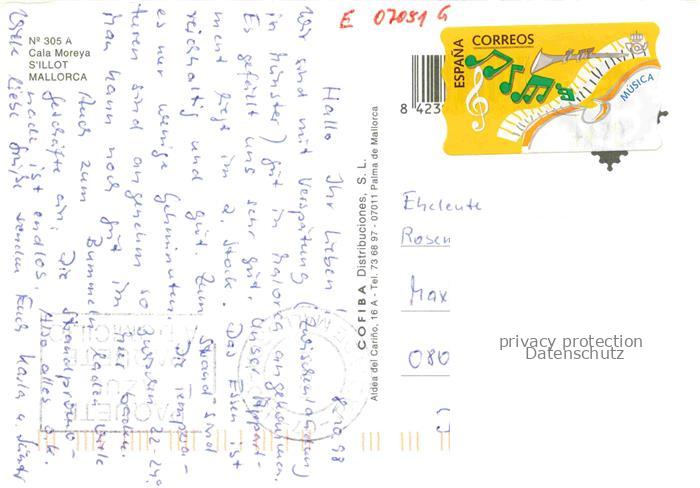 E 07091 G
Nº 305 A
Cala Moreya
S'ILLOT
MALLORCA
ESPAÑA
CORREOS
MÚSICA
8 423
COFIBA Distribuciones, S. L.
Aldea del Cariño, 16 A - Tel. 73 68 97 - 07011 Palma de Mallorca
Eheleute
Rosen
Max
080
privacy protection
Datenschutz
8.10.98
Hallo Ihr Lieben!
Wir sind mit Verspätung (Zwischenlandung
in Münster) gut in Mallorca angekommen.
Es gefällt uns sehr gut. Unser Appart-
ment liegt im 2. Stock. Das Essen ist
reichhaltig und gut. Zum Strand sind
es nur wenige Gehminuten. Die Tempera-
turen sind angenehm so zwischen 22-24°.
Man kann noch gut im Meer baden.
Auch zum Bummeln laden viele
Geschäfte ein. Die Strandprome-
nade ist endlos. Also alles o.k.
Viele liebe Grüße senden Euch Karla u.
PAQUETE
AZUL
A DOMICILIO